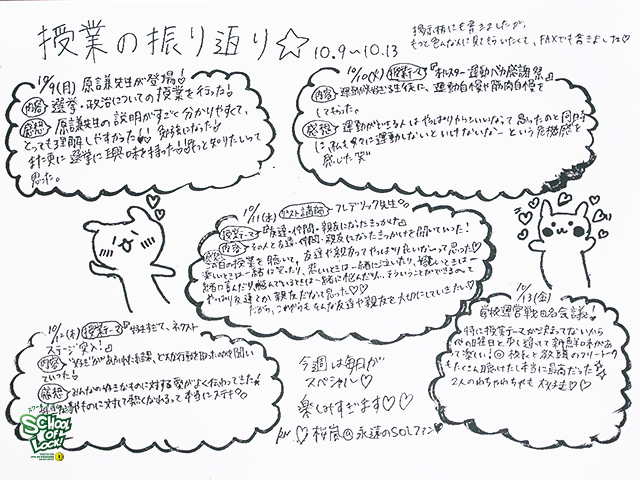 授業の振り返り☆ 10.9〜10.13
掲示板にも書きましたが、
もっと色んな人に見てもらいたくて、FAXでも書きました♡
10/9(月) 原言義先生が登場!
内容 選挙・政治についての授業を行った!
感想 原言義先生の説明がすごく分かりやすくて、
とっても理解しやすかった!! 勉強になった!
また更に選挙に興味を持った!!もっと知りたいって
思った。
10/10(火) 授業テーマ『オルスター運動バカ感謝祭』
内容 運動が好きな生徒に、運動自慢や筋肉自慢を
してもらった。
感想 運動ができる人はやっぱりかっこいいなって思ったのと同時
に、私も久々に運動しないといけないな〜という危機感を
感じた笑
10/11(水) ゲスト講師 フレデリック先生
授業テーマ『友達・仲間・親友になったきっかけ』
内容 その人と友達・仲間・親友になったきっかけを聞いていった!
今日の授業を聴いて、友達や親友ってやっぱり良いなって思った♡
楽しいときは一緒に笑ったり、悲しいときは一緒に泣いたり、嬉しいときは一
緒に喜んだり、悩んでいるときは一緒に悩んだり…そういうことができるのって
やっぱり友達とか親友だなって思った♡♡
だから、これからもそんな友達や親友を大切にしていきたい♡
10/12(木) 授業テーマ『好きすぎて、ネクスト
ステージ突入!』
内容
感想 みんなの好きなものに対する愛がよく伝わってきた!
好きなものに対して熱くなれるって本当にステキ♡
10/13(金)
学校運営戦略会議!
2人のわちゃわちゃも大好き♡
今週は毎日が
スペシャル♡
楽しみすぎます♡♡
RN ♡桜嵐@永遠のSOLファン♡
SCHOOL
OF
LOCK!